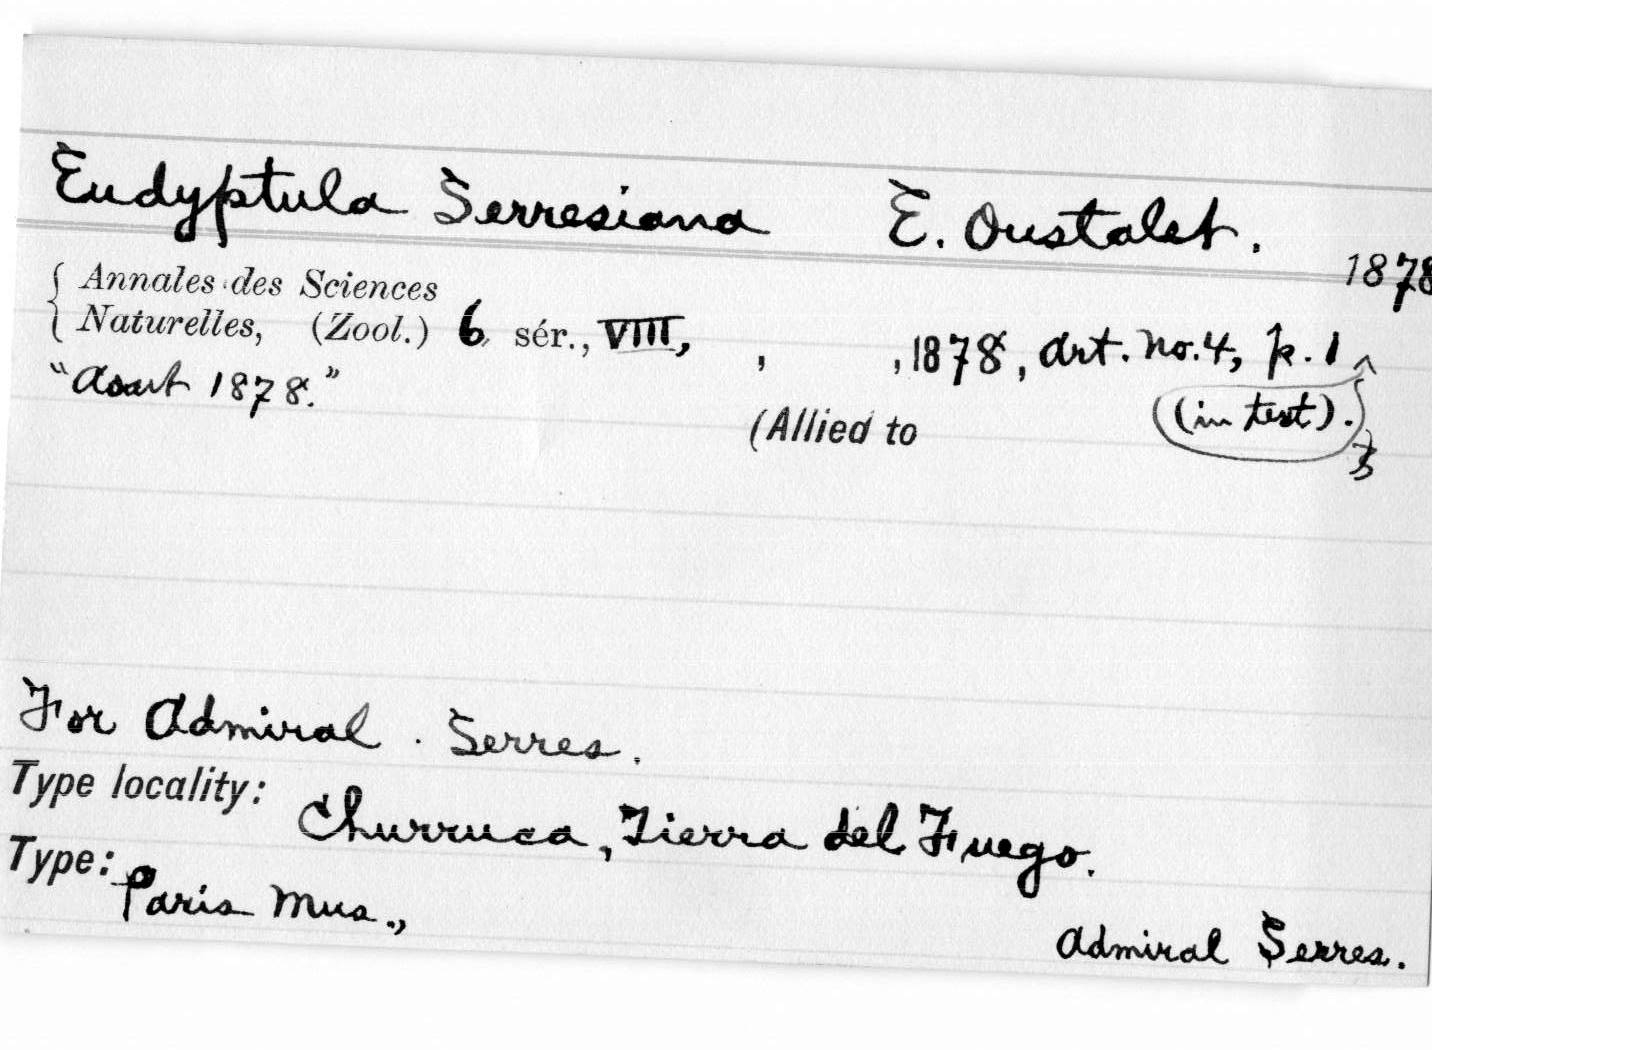 Eudyptula Serresiana E. Oustalet.
1878
Annales des Sciences
Naturelles, (Zool.) 6 sér., VIII, , , 1878, Art. No. 4, p. 1
"Aout 1878."
(in text).
(Allied to
For Admiral . Serres.
Type locality: Churruca, Tierra del Fuego.
Type: Paris Mus.,
Admiral Serres.